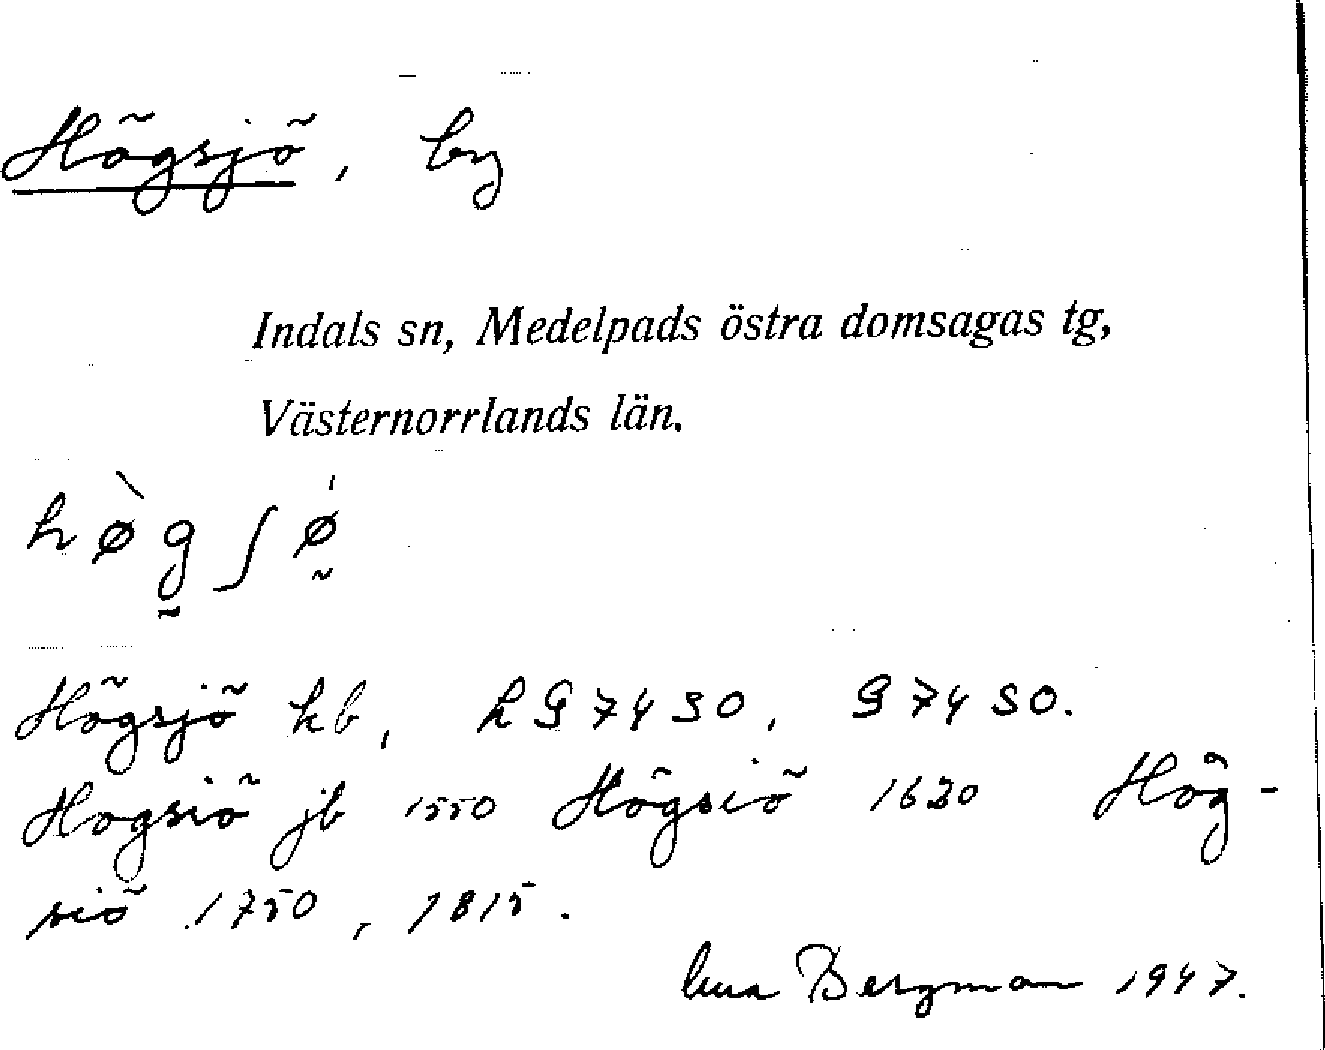 Högsjö, by
Indals sn, Medelpads östra domsagas tg,
Västernorrlands län.
hø̀g̰ʃǿ̰
Högsjö kb, LG7450, G7450.
Hogsiö jb 1550 Högsiö 1620 Hög-
siö 1750, 1815.
Bergman 1947.